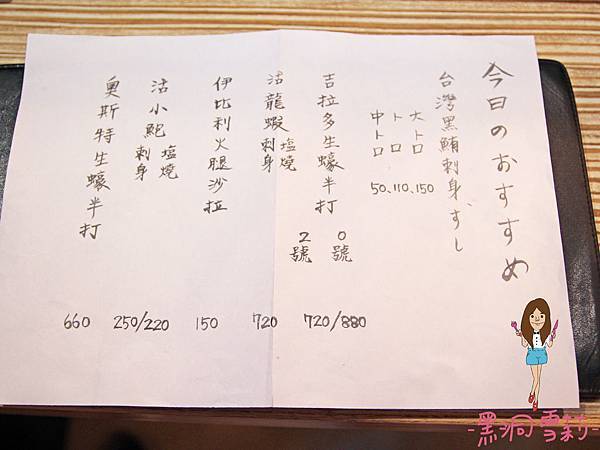 今日のおすすめ
台灣黑鮪刺身ずし
大トロ
トロ
中トロ
50、110、150
吉拉多生蠔半打
0號
2號
720/880
活龍蝦 塩燒
刺身
720
伊比利火腿沙拉
150
活小鮑 塩燒
刺身
250/220
奧斯特生蠔半打
660
-黑洞雪莉-